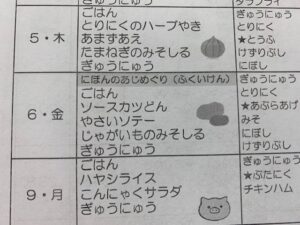 タラフライ
5・木
ごはん
とりにくのハーブやき
あまずあえ
たまねぎのみそしる
ぎゅうにゅう
ぎゅうにゅう
とりにく
★とうふ
けずりぶし
にぼし
6・金
にほんのあじめぐり（ふくいけん）
ごはん
ソースカツどん
やさいソテー
じゃがいものみそしる
ぎゅうにゅう
ぎゅうにゅう
とりにく
★あぶらあげ
みそ
にぼし
けずりぶし
9・月
ごはん
ハヤシライス
こんにゃくサラダ
ぎゅうにゅう
ぎゅうにゅう
★ぶたにく
チキンハム